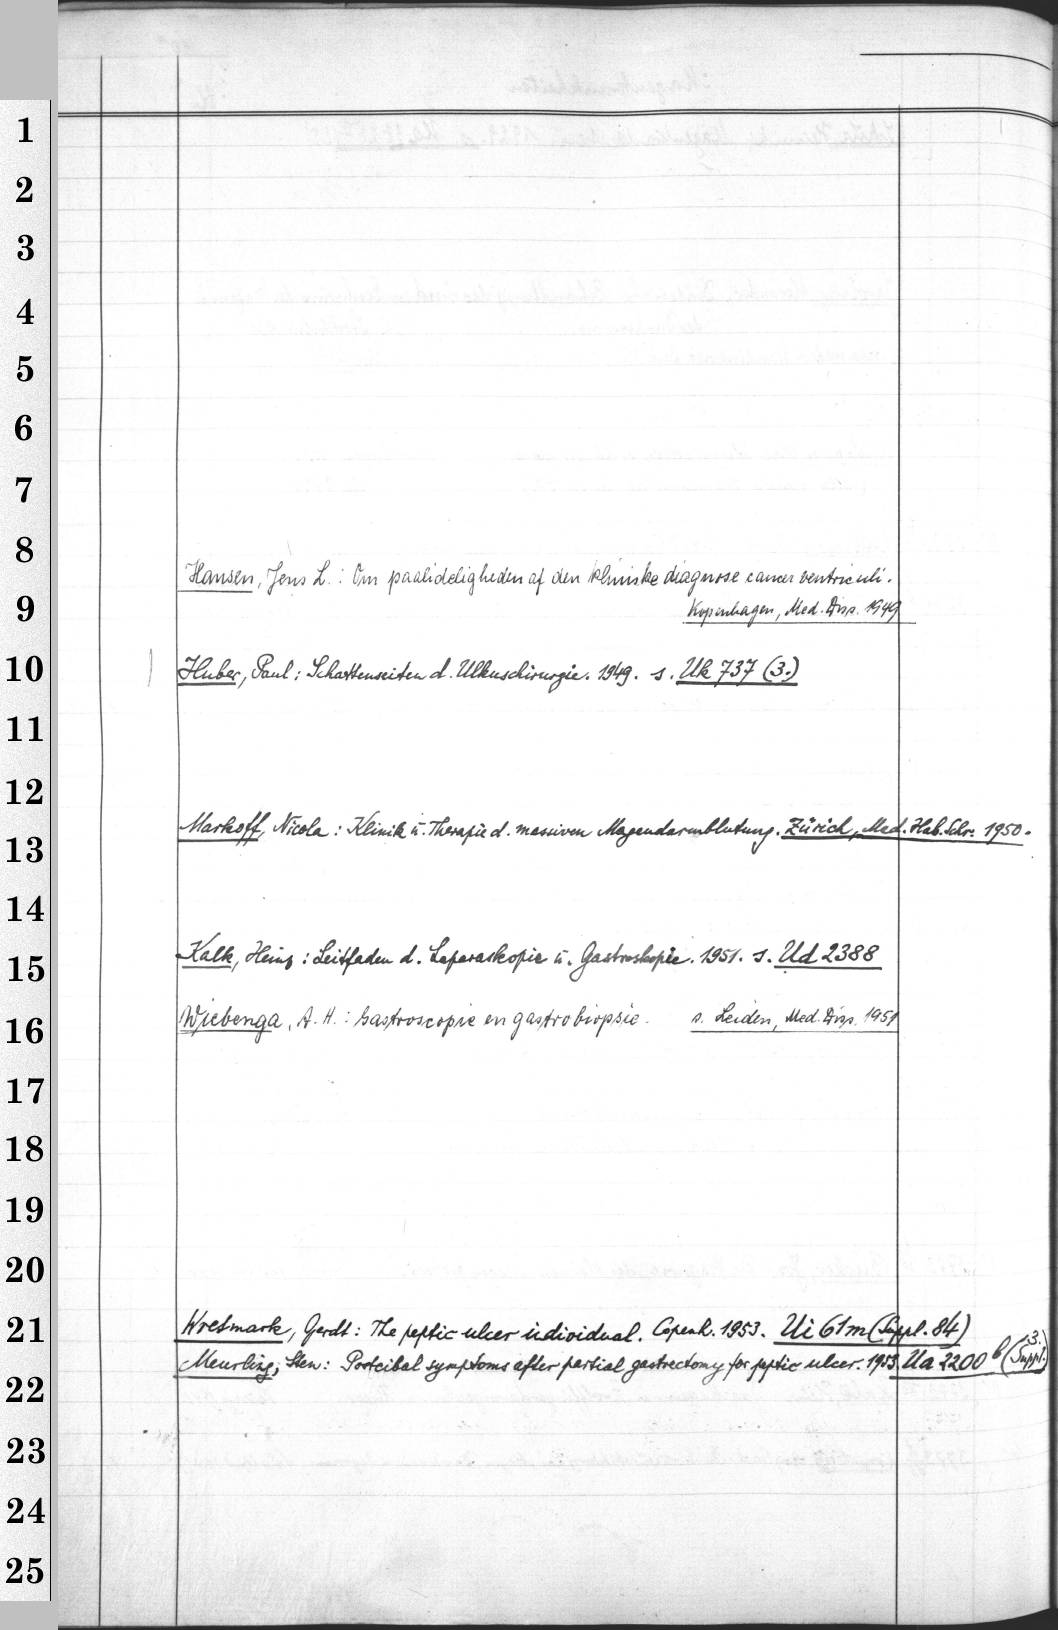 1
2
3
4
5
6
7
8
Hansen, Jens L.: Om paalideligheden af den kliniske diagnose cancer ventriculi.
9
Kopenhagen, Med. Diss. 1949
10
Huber, Paul: Schattenseiten d. Ulkuschirurgie. 1949. s. Uk 737 (3.)
11
12
Markoff, Nicola: Klinik u. Therapie d. massiven Magendarmblutung. Zürich, Med. Hab. Schr. 1950.
13
14
Kalk, Heinz: Leitfaden d. Laparaskopie u. Gastroskopie. 1951. s. Ud 2388
15
Wiebenga, A. H.: Gastroscopie en gastrobiopsie. s. Leiden, Med. Diss. 1951
16
17
18
19
20
Wretmark, Gerdt: The peptic ulcer individual. Copenh. 1953. Ui 61m (Suppl. 84)
21
Meurling, Sten: Postcibal symptoms after partial gastrectomy for peptic ulcer. 1953. Ua 2200 b (3. Suppl.)
22
23
24
25